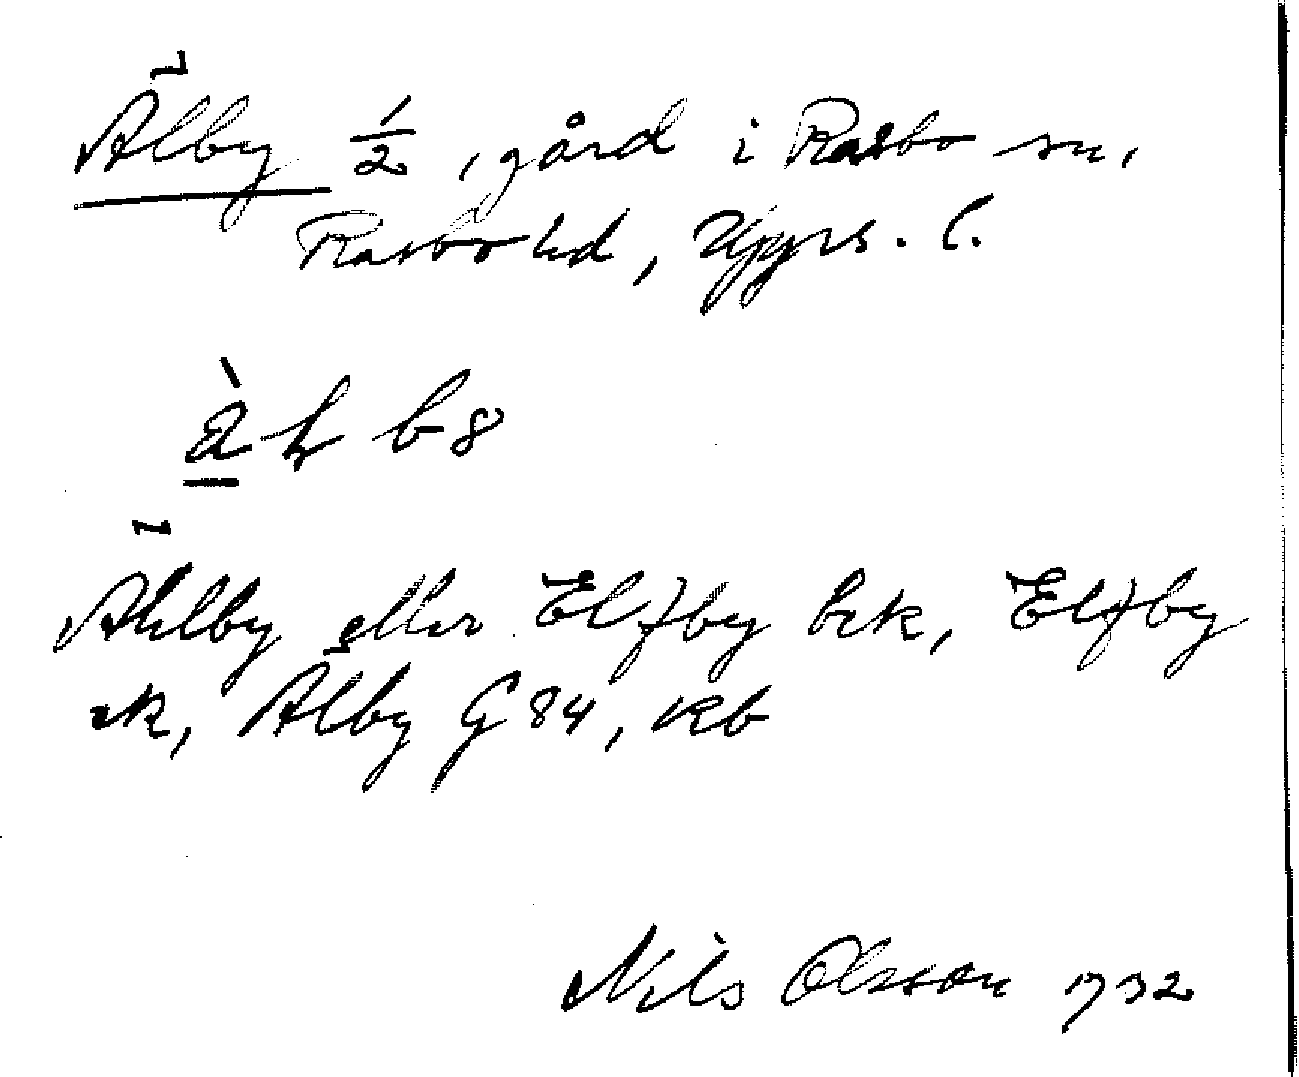 Älby 1/2, gård i Rasbo sn,
Rasbo hd, Upps. l.
Ählby eller Elfby bek, Elfby
ek, Älby G 84, kb
Nils Olsson 1932